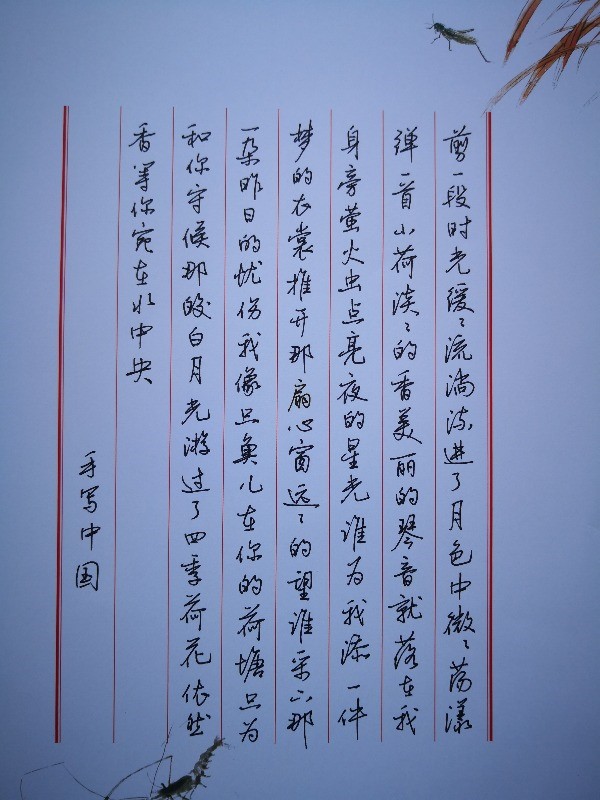 剪一段时光缓缓流淌流进了月色中微微荡漾
弹一首小荷淡淡的香美丽的琴音就落在我
身旁萤火虫点亮夜的星光谁为我添一件
梦的衣裳推开那扇心窗远远的望谁采下那
一朵昨日的忧伤我像只鱼儿在你的荷塘只为
和你守候那皎白月光游过了四季荷花依然
香等你宛在水中央
手写中国